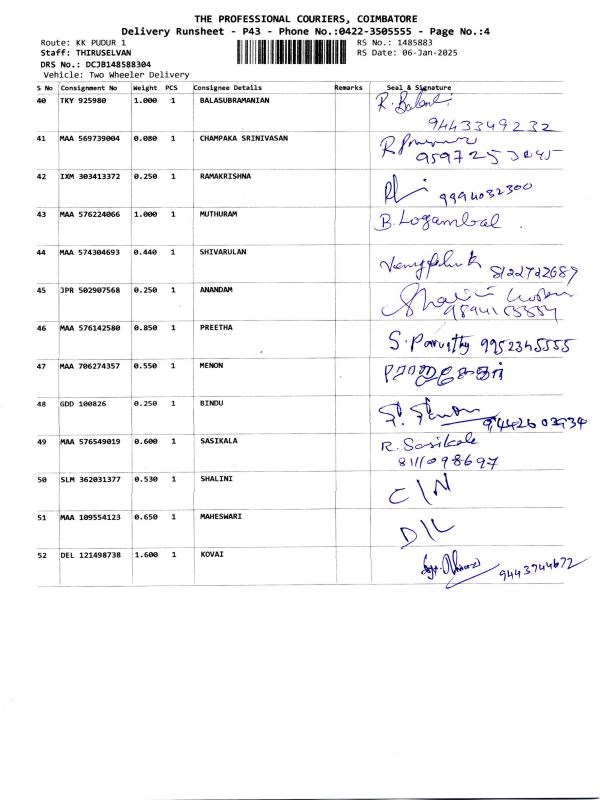 THE PROFESSIONAL COURIERS, COIMBATORE
Delivery Runsheet - P43 - Phone No.:0422-3505555 - Page No.:4
Route: KK PUDUR 1 RS No.: 1485883
Staff: THIRUSELVAN RS Date: 06-Jan-2025
DRS No.: DCJB148588304
Vehicle: Two Wheeler Delivery
S No Consignment No Weight PCS Consignee Details Remarks Seal & Signature
40 TKY 925980 1.000 1 BALASUBRAMANIAN R. Balaki
9443349232
41 MAA 569739004 0.080 1 CHAMPAKA SRINIVASAN
42 IXM 303413372 0.250 1 RAMAKRISHNA 9994032300
43 MAA 576224066 1.000 1 MUTHURAM B. Logambal
44 MAA 574304693 0.440 1 SHIVARULAN 8122722689
45 JPR 502907568 0.250 1 ANANDAM
46 MAA 576142580 0.850 1 PREETHA S. Parvathy 9952345555
47 MAA 706274357 0.550 1 MENON
48 GDD 100826 0.250 1 BINDU 9442603934
49 MAA 576549019 0.600 1 SASIKALA R. Sasikala
8111098697
50 SLM 362031377 0.530 1 SHALINI C/N
51 MAA 109554123 0.650 1 MAHESWARI D/L
52 DEL 121498738 1.600 1 KOVAI 9443944672